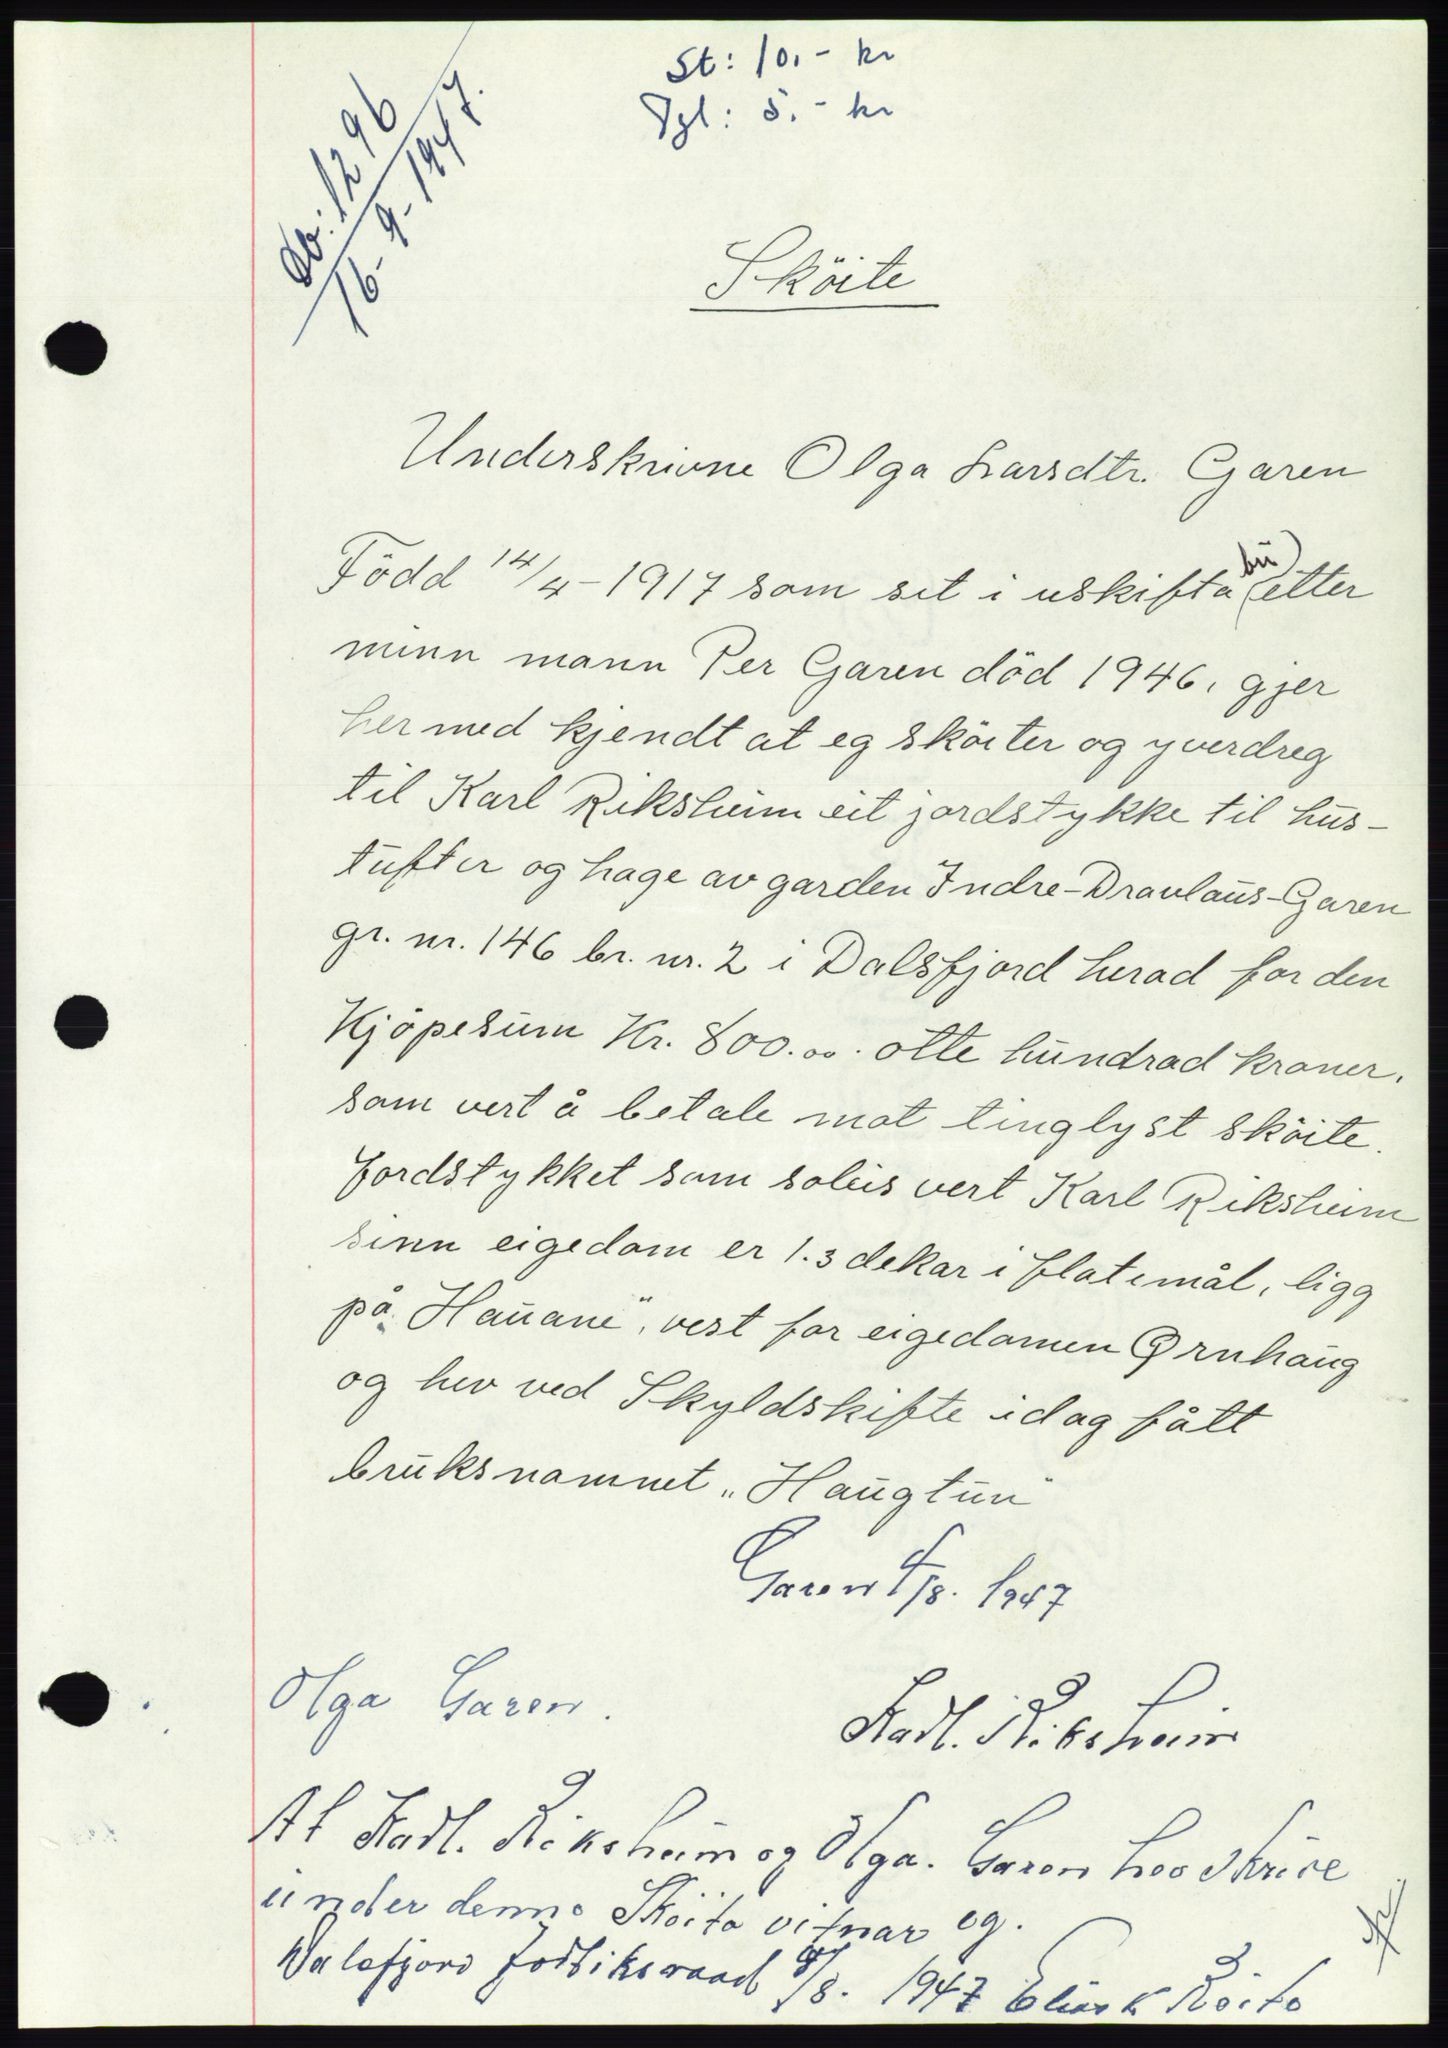 St: 10,- kr
Tgl: 5,- kr
Db: 1296
16-9-1947.
Sköite
Underskrivne Olga Larsdtr. Garen
Född 14/4-1917 som set i uskifta (bú) etter
minn mann Per Garen död 1946, gjer
hermed kjendt at eg sköiter og yverdreg
til Karl Riksheim eit jordstykke til hús-
túfter og hage av garden Indre-Dravlaús-Garen
gr. nr. 146 br. nr. 2 i Dalsfjord herad for den
Kjöpesúm Kr. 800.00. otte húndrad kroner,
som vert å betale mot tinglyst sköite.
Jordstykket som soleis vert Karl Riksheim
sinn eigedom er 1.3 dekar i flatemål, ligg
på „Haúane", vest for eigedomen Ørnhaúg
og hev ved Skyldskifte idag fått
brúksnamnet „Haúgtún"
Garen 4/8. 1947
Olga Garen.
Karl. Riksheim
At Karl. Riksheim og Olga. Garen hev skrive
únder denne Sköite vitnar eg.
Dalsfjord 8/8. 1947 Elias K Röite